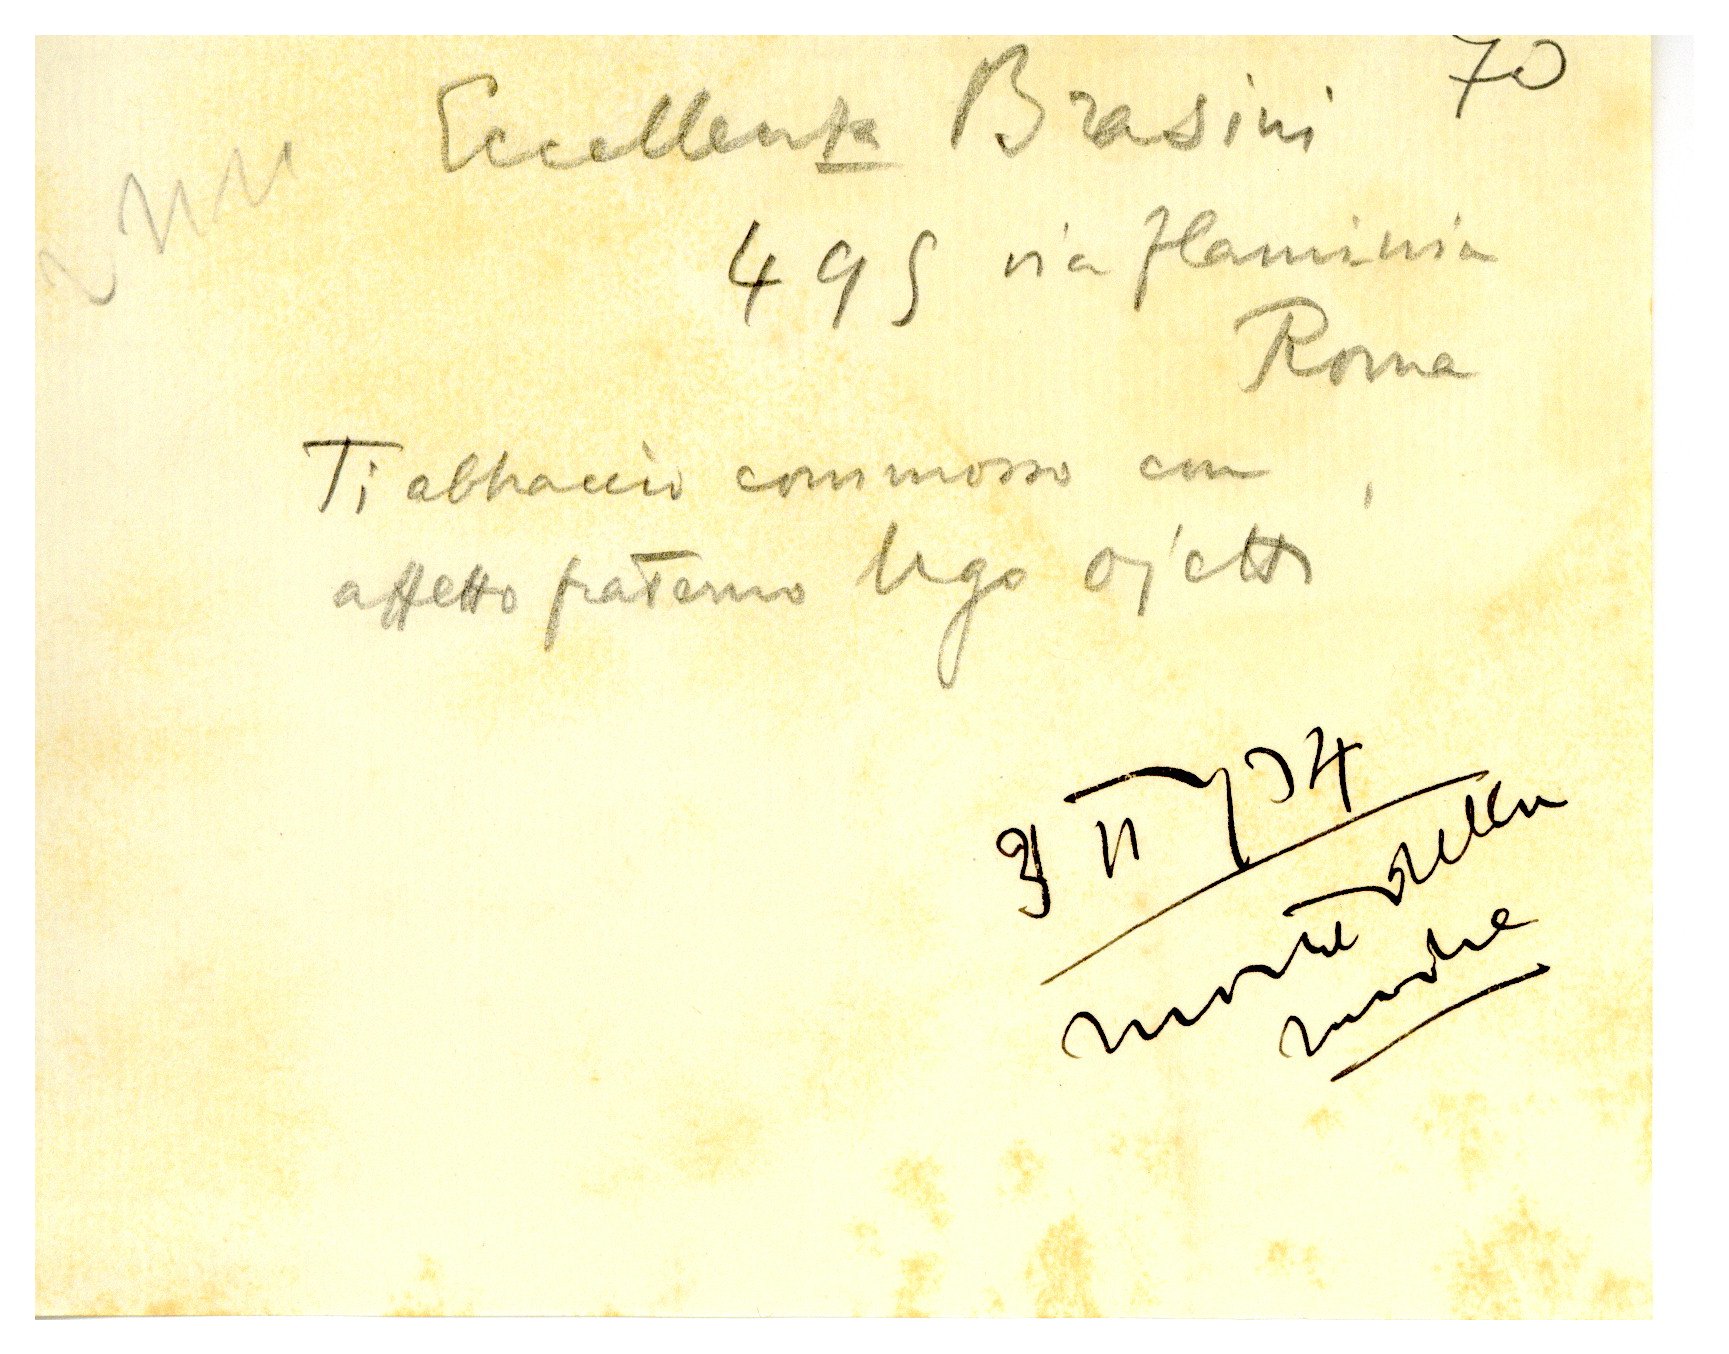 70
Eccellenza Brasini
495 via Flaminia
Roma
Ti abbraccio commosso con
affetto fraterno Ugo Ojetti
II 934
morte della
madre